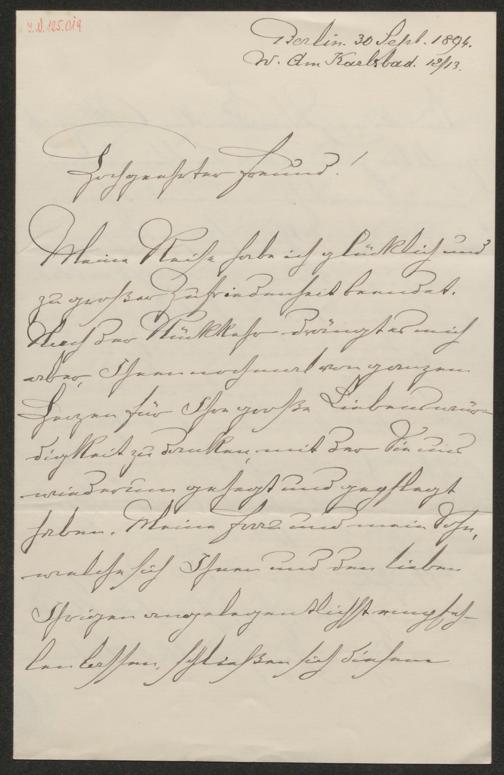 I.N. 125.019
Berlin. 30 Sept. 1894.
W. Am Karlsbad. 12/13.
Hochgeehrter Freund!
Meine Reise habe ich glücklich und
zu großer Zufriedenheit beendet.
Nach der Rückkehr drängt es mich
aber, Ihnen nochmal von ganzem
Herzen für Ihre große Liebenswür-
digkeit zu danken, mit der Sie uns
wiederum gehegt und gepflegt
haben. Meine Frau und mein Sohn,
welche sich Ihnen und den lieben
Ihrigen angelegentlichst empfeh-
len lassen, schließen sich diesem